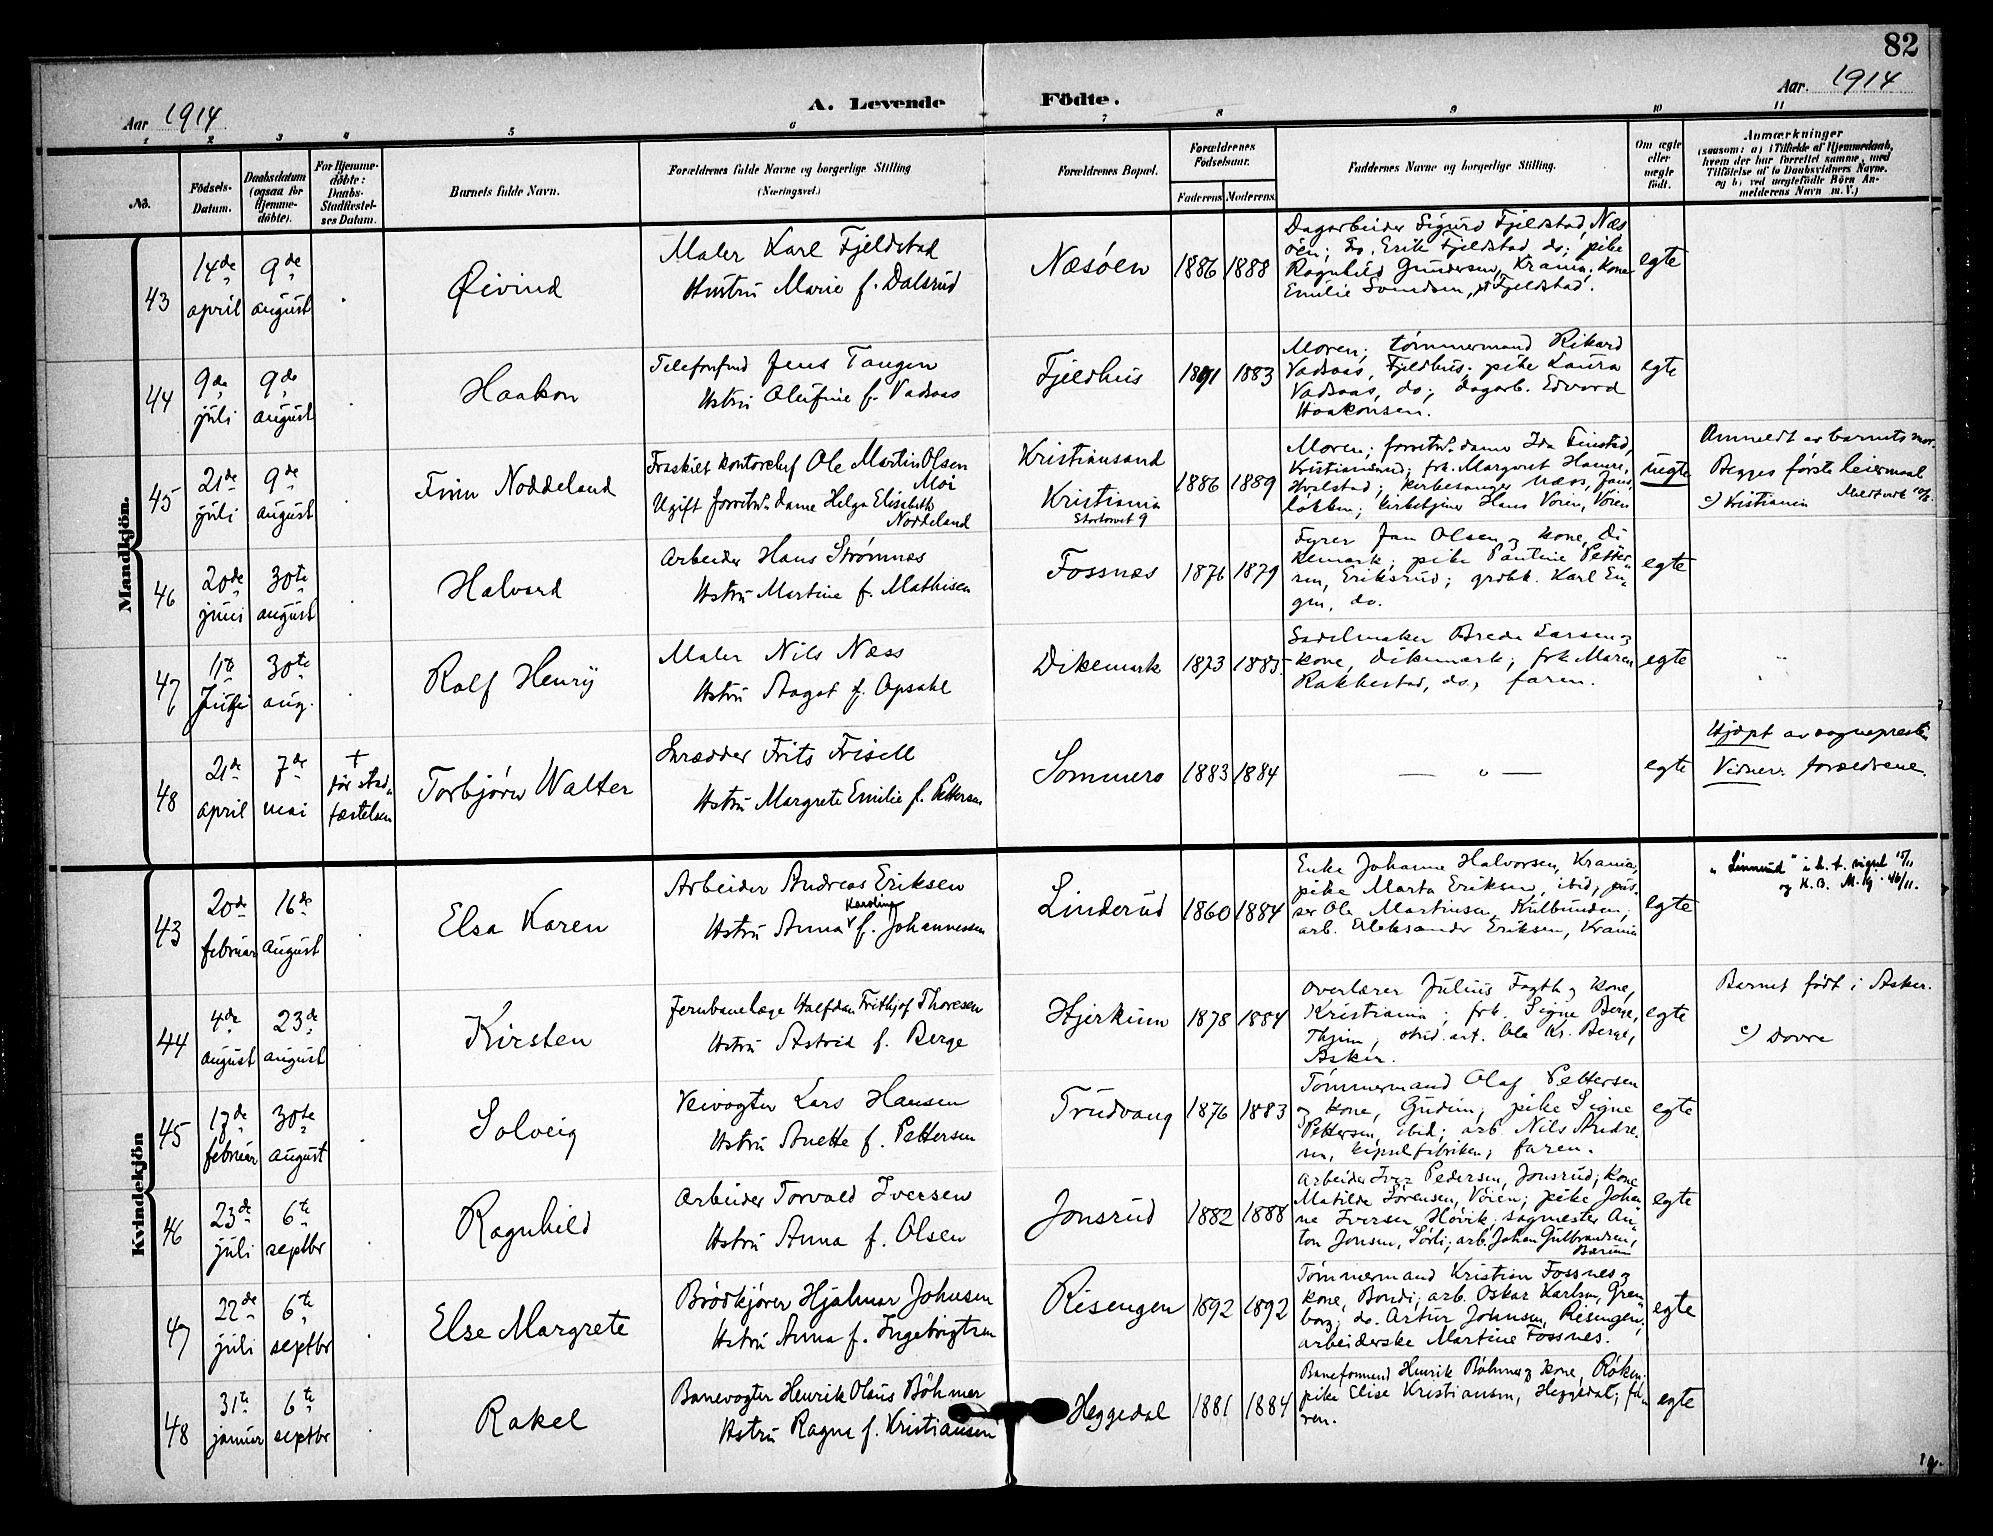 82
Aar 1914
A. Levende Födte.
Aar. 1914
1 2 3 4 5 6 7 8 9 10 11
No.
Födsels-Datum.
Daabsdatum (ogsaa for Hjemme-döbte).
For Hjemme-döbte: Daabs-Stadfæstel-ses Datum.
Barnets fulde Navn.
Forældrenes fulde Navne og borgerlige Stilling (Næringsvei.)
Forældrenes Bopæl.
Forældrenes Födselsaar.
Faderens Moderens
Faddernes Navne og borgerlige Stilling.
Om ægte eller uægte födt.
Anmærkninger
(saasom: a) i Tilfælde af Hjemmedaab, hvem der har forrettet samme, med Tilföielse af to Daabsvidners Navne. og b) ved uægtefödte Börn An-melderens Navn m. V.)
Mandkjön.
43
14de april
9de august
Øivind
Maler Karl Fjeldstad
Hustru Marie f. Dalsrud
Næsöen
1886 1888
Dagarbeider Sigurd Fjeldstad, Næs
öen; do. Erik Fjeldstad, do; pike
Ragnhild Gundersen, Krania; kone
Emilie Svendsen, Fjeldstad.
egte
44
9de juli
9de august
Haakon
Telefonfmd Jens Tangen
Hstru Olufine f. Vadsaas
Fjeldhus
1891 1883
Moren; tømmermand Rikard
Vadsaas, Fjeldhus; pike Laura
Vadsaas, do; dagarb. Edvard
Haakonsen.
egte
45
21de juli
9de august
Finn Noddeland
Fraskilt kontorchef Ole Martin Olsen
Moi
Ugift forretn. dame Helga Elisabeth
Noddeland
Kristiansand
Kristiania
Stortorvet 9
1886 1889
Moren; forretn. dame Ida Finstad,
Kristiansand; frk. Margaret Hamre,
Hvalstad; kirkesanger Næss, Jans
løkken; kirketjener Hans Voien, Voien
uegte
Anmeldt av barnets mor.
Begges første leiermaal
c) Kristiania
46
20de juni
30te august
Halvard
Arbeider Hans Strømnæs
Hstru Martine f. Mathisen
Fossnæs
1876 1879
Fyrer Jan Olsen og kone, Di
kemark; pike Pauline Petter
sen, Eriksrud; grdbk. Karl En
gen, do.
egte
47
11te
30te aug.
Rolf Henry
Maler Nils Næss
Hstru Aagot f. Opsahl
Dikemark
1873 1885.
Sadelmaker Brede Larsen og
kone, Dikemark; frk. Maren
Rakkestad, do, faren.
egte
48
21de april
7de mai
† før stad
fæstelsen
Torbjørn Walter
Skrædder Frits Frisell
Hstru Margrete Emilie f. Pettersen
Sommero
1883 1884
— „ —
egte
Hjdpt av sognepresten
Vidner: forældrene.
Kvindekjön
43
20de februar
16de august
Elsa Karen
Arbeider Andreas Eriksen
Karoline
Hstru Anna f. Johannessen
Linderud
1860 1884
Enke Johanne Halvorsen, Krania,
pike Marta Eriksen, ibid, pus
ser Ole Martinsen, Kulbunden,
arb. Aleksander Eriksen, Krania
egte
44
4de august
23de august
Kirsten
Jernbanelæge Halfdan Frithjof Thoresen
Hstru Astrid f. Berge
Hjerkinn
1878 1884
Overlærer Julius Fagth og kone,
Kristiania; frk. Signe Berge,
Thjem, stud. art. Ola Kr. Berge,
Asker.
egte
Barnet født i Asker.
c) Dovre
45
17de februar
30te august
Solveig
Veivogter Lars Hansen
Hstru Anette f. Pettersen
Trudvang
1876 1883
Tømmermand Olaf Pettersen
og kone, Gudim; pike Signe
Pettersen, ibid; arb. Nils Andre
sen, kapselfabriken; faren.
egte
46
23de juli
6te septbr
Ragnhild
Arbeider Torvald Iversen
Hstru Anna f. Olsen
Jonsrud
1882 1888
Arbeider Iver Pedersen, Jonsrud; kone
Matilde Sørensen, Voien; pike Johan
ne Iversen, Høvik; sagmester An
ton Jonsen, Sørli; arb. Johan Gulbrandsen,
Bærum
egte
47
22de juli
6te septbr
Else Margrete
Brødkjører Hjalmar Johnsen
Hstru Anna f. Ingebrigtsen
Risengen
1892 1892
Tømmermand Kristian Fossnes og
kone, Bondi; arb. Oskar Karlsen, Gren
borg; do. Artur Johnsen, Risengen;
arbeiderske Martine Fossnes.
egte
48
31te januar
6te septbr
Rakel
Banevogter Henrik Olaus Böhmer
Hstru Ragna f. Kristiansen
Heggedal
1881 1884
Baneformand Henrik Böhmer og kone, Röken;
pike Elise Kristiansen, Heggedal; fa
ren.
egte